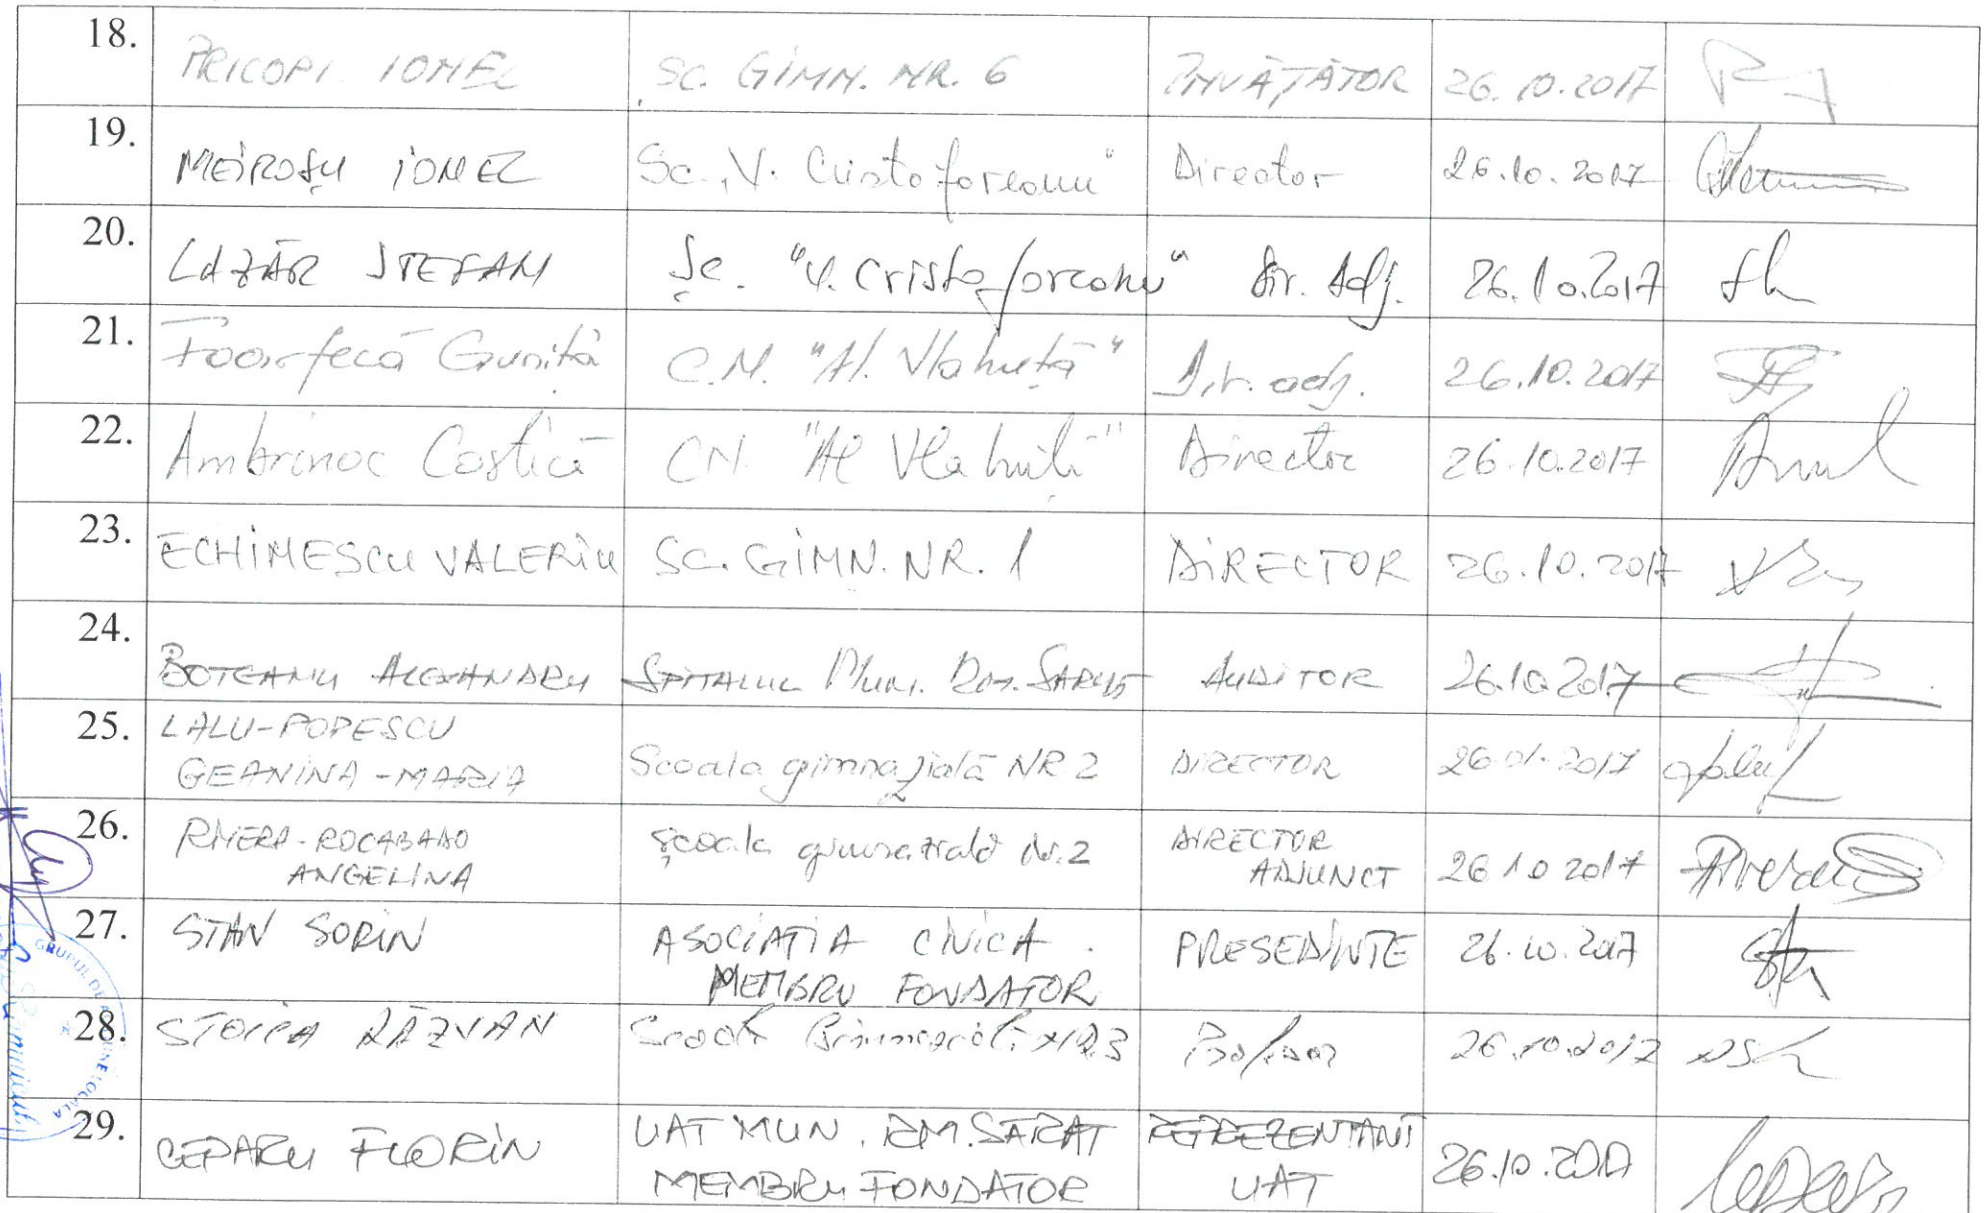 18. PRICOPI IONEL SC. GIMN. NR. 6 ÎNVĂȚĂTOR 26.10.2017
19. MEIROȘU IONEL Sc. „V. Cristoforeanu" Director 26.10.2017
20. LAZĂR ȘTEFAN Șc. "V. Cristoforeanu" Dir. Adj. 26.10.2017
21. Foarfecă Gunită C.N. "Al. Vlahuță" Dir. adj. 26.10.2017
22. Ambrinoc Costică CN. "Al Vlahuță" Director 26.10.2017
23. ECHIMESCU VALERIU SC. GIMN. NR. 1 DIRECTOR 26.10.2017
24. BOTEANU ALEXANDRU SPITALUL MUN. RM. SARAT AUDITOR 26.10.2017
25. LALU-POPESCU
GEANINA-MARIA Scoala gimnazială NR 2 DIRECTOR 26.01.2017
26. RIVERA-ROCABADO
ANGELINA Școala gimnazială Nr. 2 DIRECTOR
ADJUNCT 26 10 2017
27. STAN SORIN ASOCIAȚIA CIVICA
MEMBRU FONDATOR PRESEDINTE 26.10.2017
28. STOICA RĂZVAN Scoala Gimnazială NR3 Profesor 26.10.2017
29. CEPARU FLORIN UAT MUN. RM. SĂRAT
MEMBRU FONDATOR REPREZENTANT
UAT 26.10.2017
GRUPUL DE LOCALA